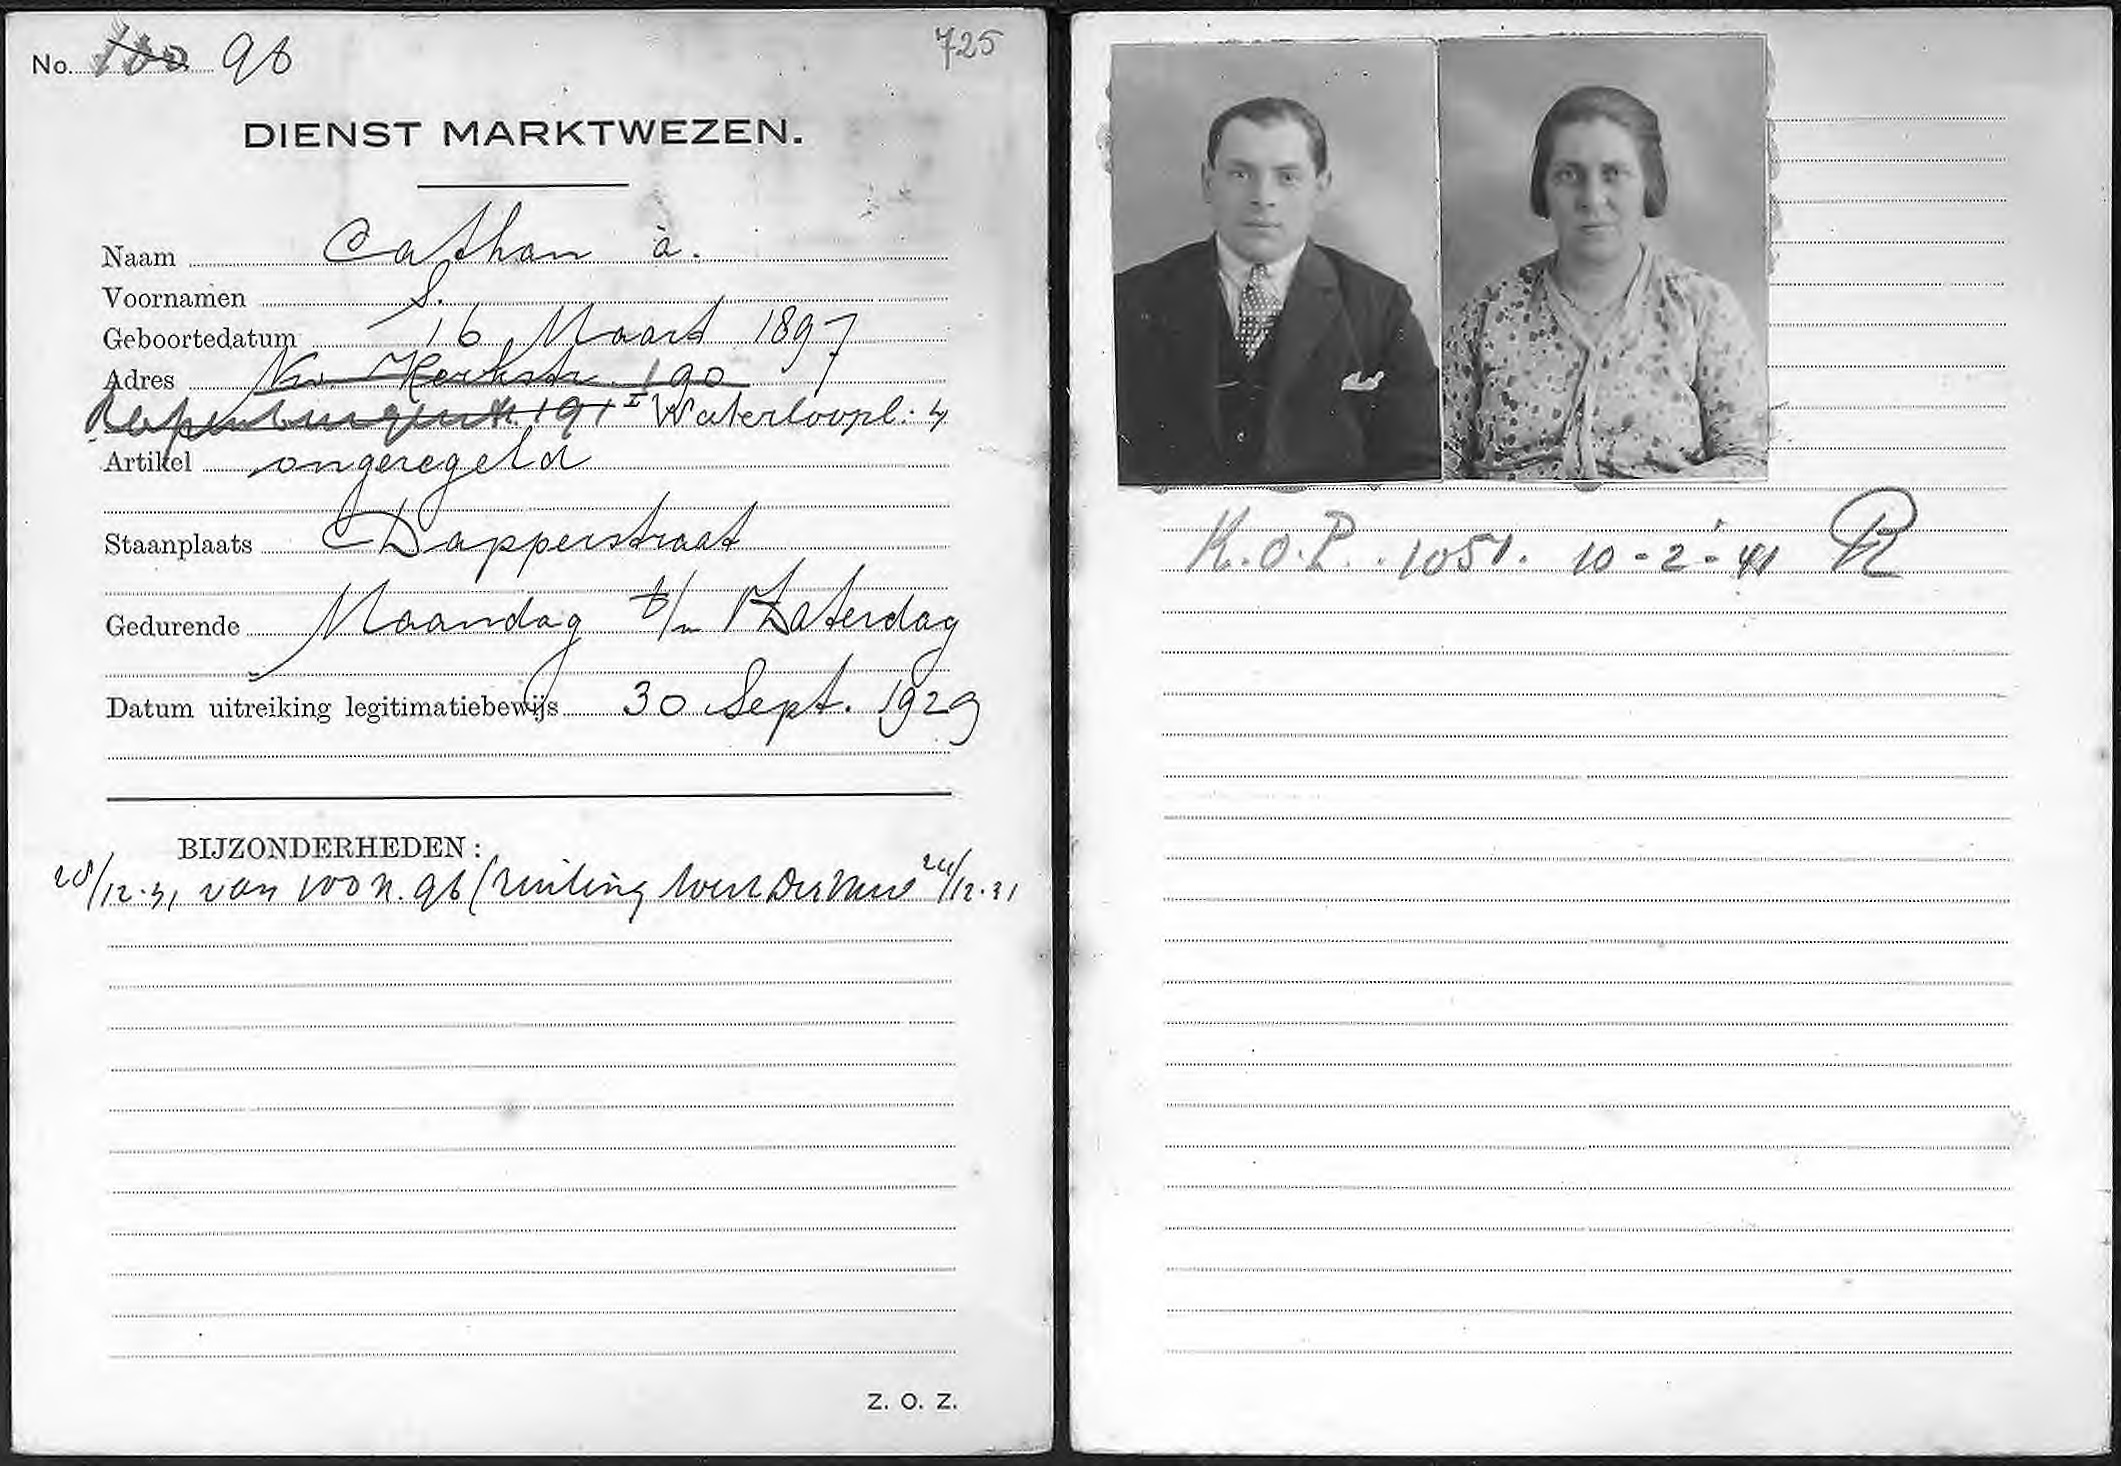 No. 100 96
725
DIENST MARKTWEZEN.
Naam Cathan à.
Voornamen S.
Geboortedatum 16 Maart 1897
Adres Nw. Kerkstr. 190
Rapenburgerstr. 191 I Waterloopl. 4
Artikel ongeregeld
Staanplaats Dapperstraat
Gedurende Maandag t/m Zaterdag
Datum uitreiking legitimatiebewijs 30 Sept. 1929
BIJZONDERHEDEN:
28/12.31 van 100 n. 96 (ruiling 24/12.31
Z. O. Z.
K.O.P. 1051. 10-2-'41